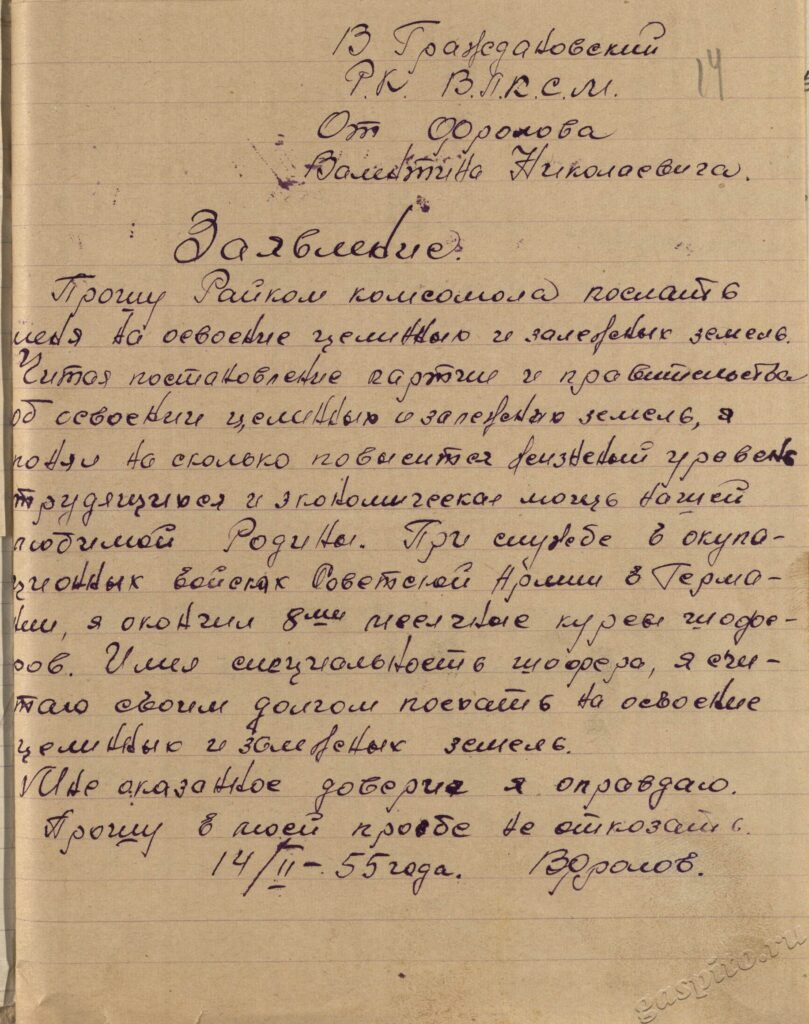 В Граждановский
Р.К. В.Л.К.С.М.
14
От Фролова
Валентина Николаевича.
Заявление.
Прошу Райком комсомола послать
меня на освоение целинных и залежных земель.
Читая постановление партии и правительства
об освоении целинных и залежных земель, я
понял на сколько повысится жизненый уровень
трудящихся и экономическая мощь нашей
любимой Родины. При службе в окупа-
ционных войсках Советской Армии в Герма-
нии, я окончил 8ми месячные курсы шофе-
ров. Имия специальность шофера, я счи-
таю своим долгом поехать на освоение
целинных и залежных земель.
Мне оказанное доверие я оправдаю.
Прошу в моей прозбе не отказать.
14/II - 55 года. ВФролов.
gaspiro.ru